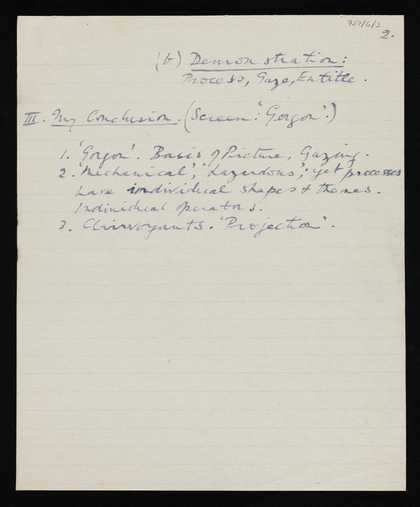 2.
(b) Demonstration:
Process, Gaze, Entitle.
III. My Conclusion. (Screen: 'Gorgon'.)
1. 'Gorgon'. Basis of Picture, Gazing.
2. 'Mechanical'; 'Hazardous'; yet processes
have individual shapes & themes.
Individual operators.
3. Clairvoyants. 'Projection'.